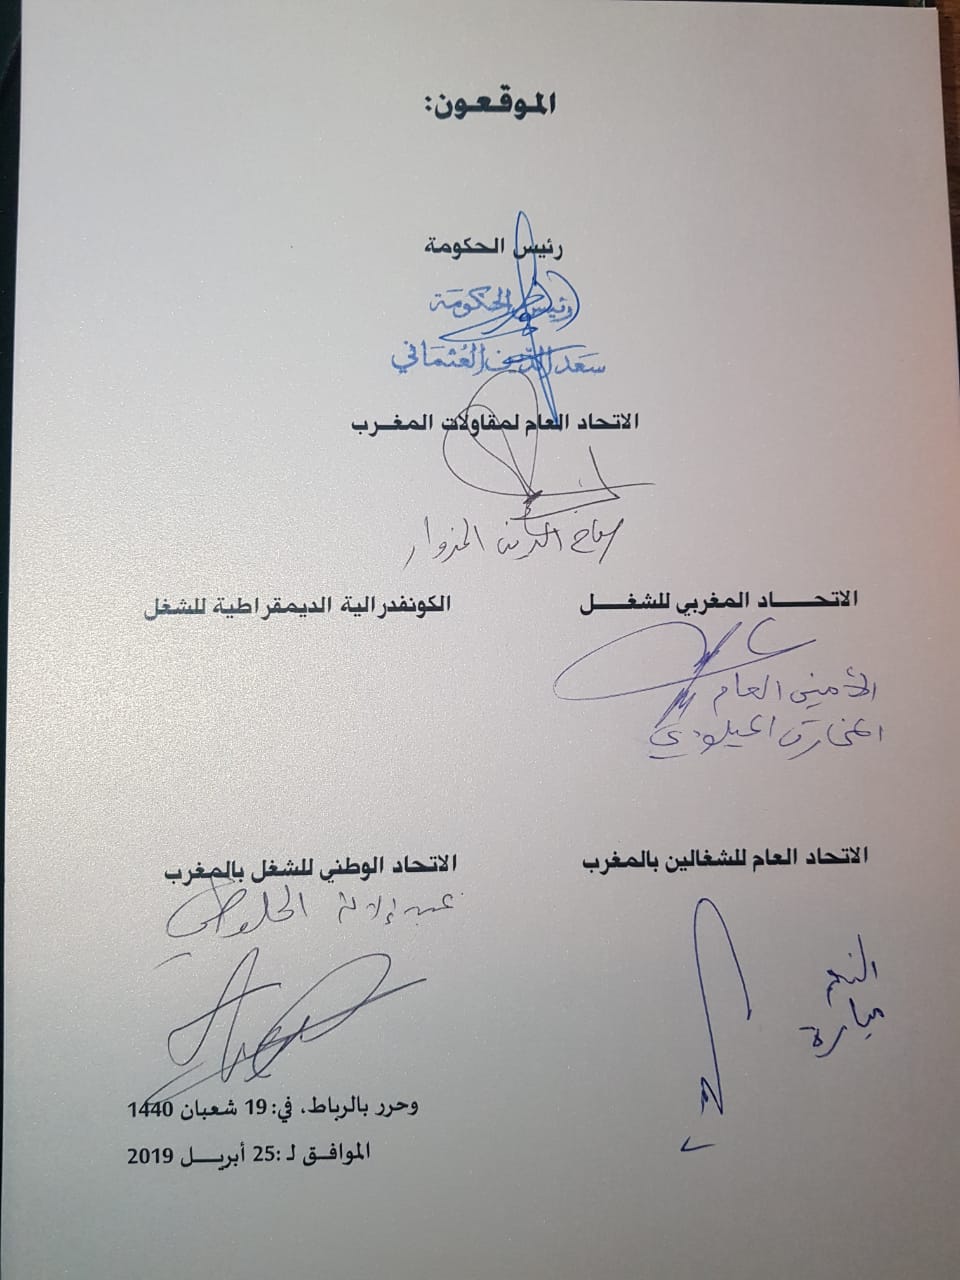 الموقعون:
رئيس الحكومة
رئيس الحكومة
سعد الدين العثماني
الاتحاد العام لمقاولات المغرب
صلاح الدين المزوار
الاتحاد المغربي للشغل
الكونفدرالية الديمقراطية للشغل
الأمين العام
المخارق الميلودي
الاتحاد العام للشغالين بالمغرب
الاتحاد الوطني للشغل بالمغرب
عبد الإلاه الحلوطي
النعم
ميارة
وحرر بالرباط، في: 19 شعبان 1440
الموافق لـ :25 أبريل 2019